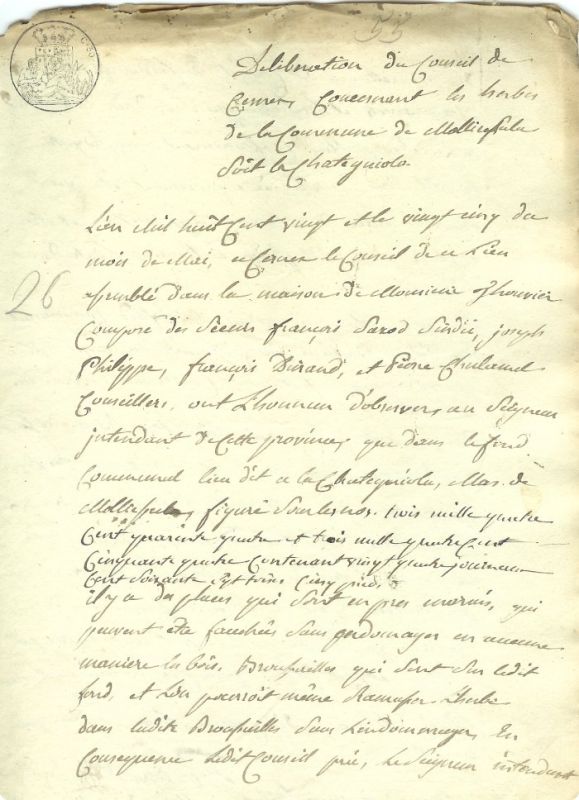 55
C. 80
Deliberation du Conseil de
Cesnes Concernant les herbes
de la Commune de Molliessulaz
Soit la Chatagniola
L'an Mil huit Cent vingt et le vingt cinq du
mois de Mai, a Cernex le Conseil de ce Lieu
assemblé dans la maison de Monsieur
26
Composé des Sieurs françois Sarod Sindic, joseph
Philippe, françois Durand, et Pierre Chulamel
Conseillers, ont l'honneur d'observer au Seigneur
intendant de Cette province, que dans le fond
Communal lieu dit a la Chatagniola, Mas de
Molliessulaz figuré sous les nos. trois mille quatre
Cent quarante quatre et trois mille quatre Cent
Cinquante quatre Contenant vingt quatre journaux
Cent soixante sept toises Cinq pieds
il y a des places qui sont en pres marais, qui
peuvent être fauchés sans endomager en aucune
maniere les bois, Broussailles qui sont sur ledit
fond, et l'on pourroit même Ramasser l'herbe
dans ladite Broussailles sans l'endommager En
Consequence ledit Conseil prie, le Seigneur intendant